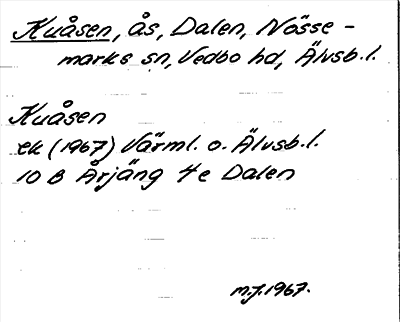 Kuåsen, ås, Dalen, Nösse-
marks sn, Vedbo hd, Älvsb.l.
Kuåsen
ek (1967) Värml. o. Älvsb.l.
10 B Årjäng 4e Dalen
m.j. 1967.